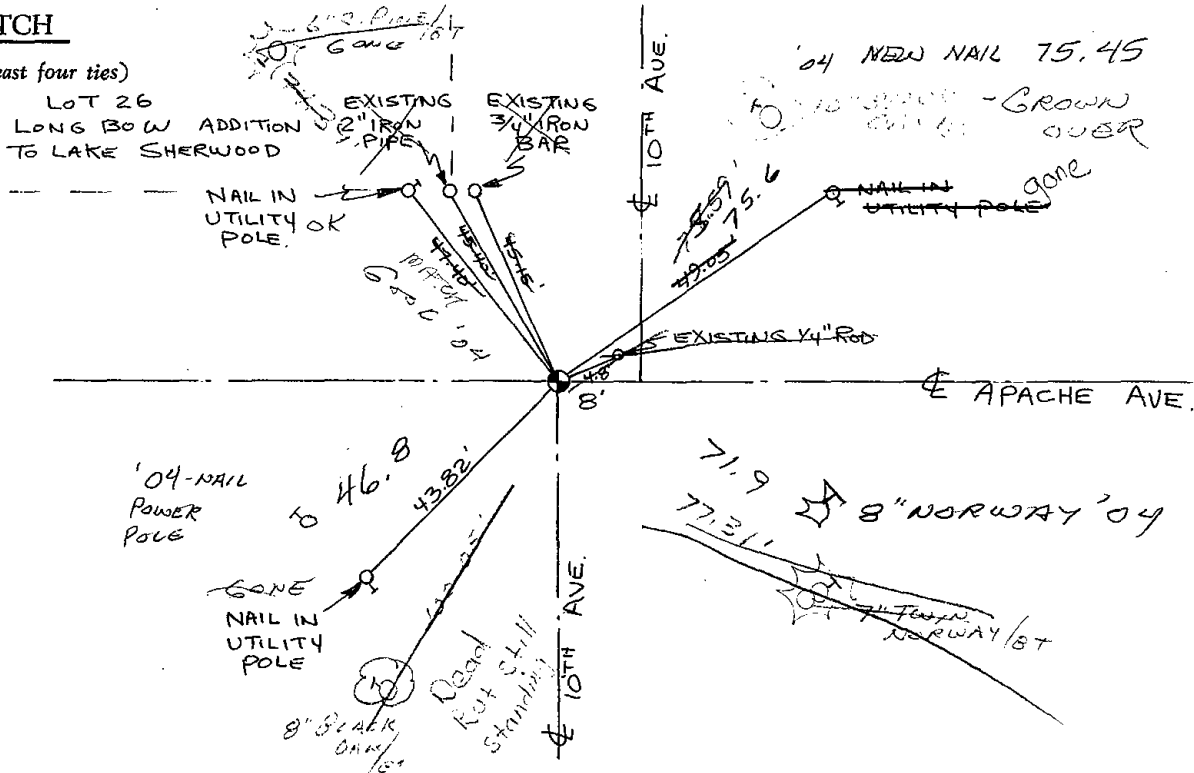 TCH
east four ties)
LOT 26
LONG BOW ADDITION
TO LAKE SHERWOOD
6" S. PINE/8T
GONE
EXISTING
2" IRON
PIPE
EXISTING
3/4" IRON
BAR
NAIL IN
UTILITY OK
POLE.
47.40'
45.40'
45.15'
MATCH
GOOD '04
℄ 10TH AVE.
'04 NEW NAIL 75.45
- GROWN
OVER
NAIL IN
UTILITY POLE
gone
75.6
49.05'
EXISTING 1/4" ROD
4.8'
8'
℄ APACHE AVE.
'04-NAIL
POWER
POLE
46.8
43.82'
GONE
NAIL IN
UTILITY
POLE
8" BLACK
OAK/8T
Dead
But Still
Standing
℄ 10TH AVE.
71.9
77.31'
8" NORWAY '04
7" TWIN
NORWAY/8T